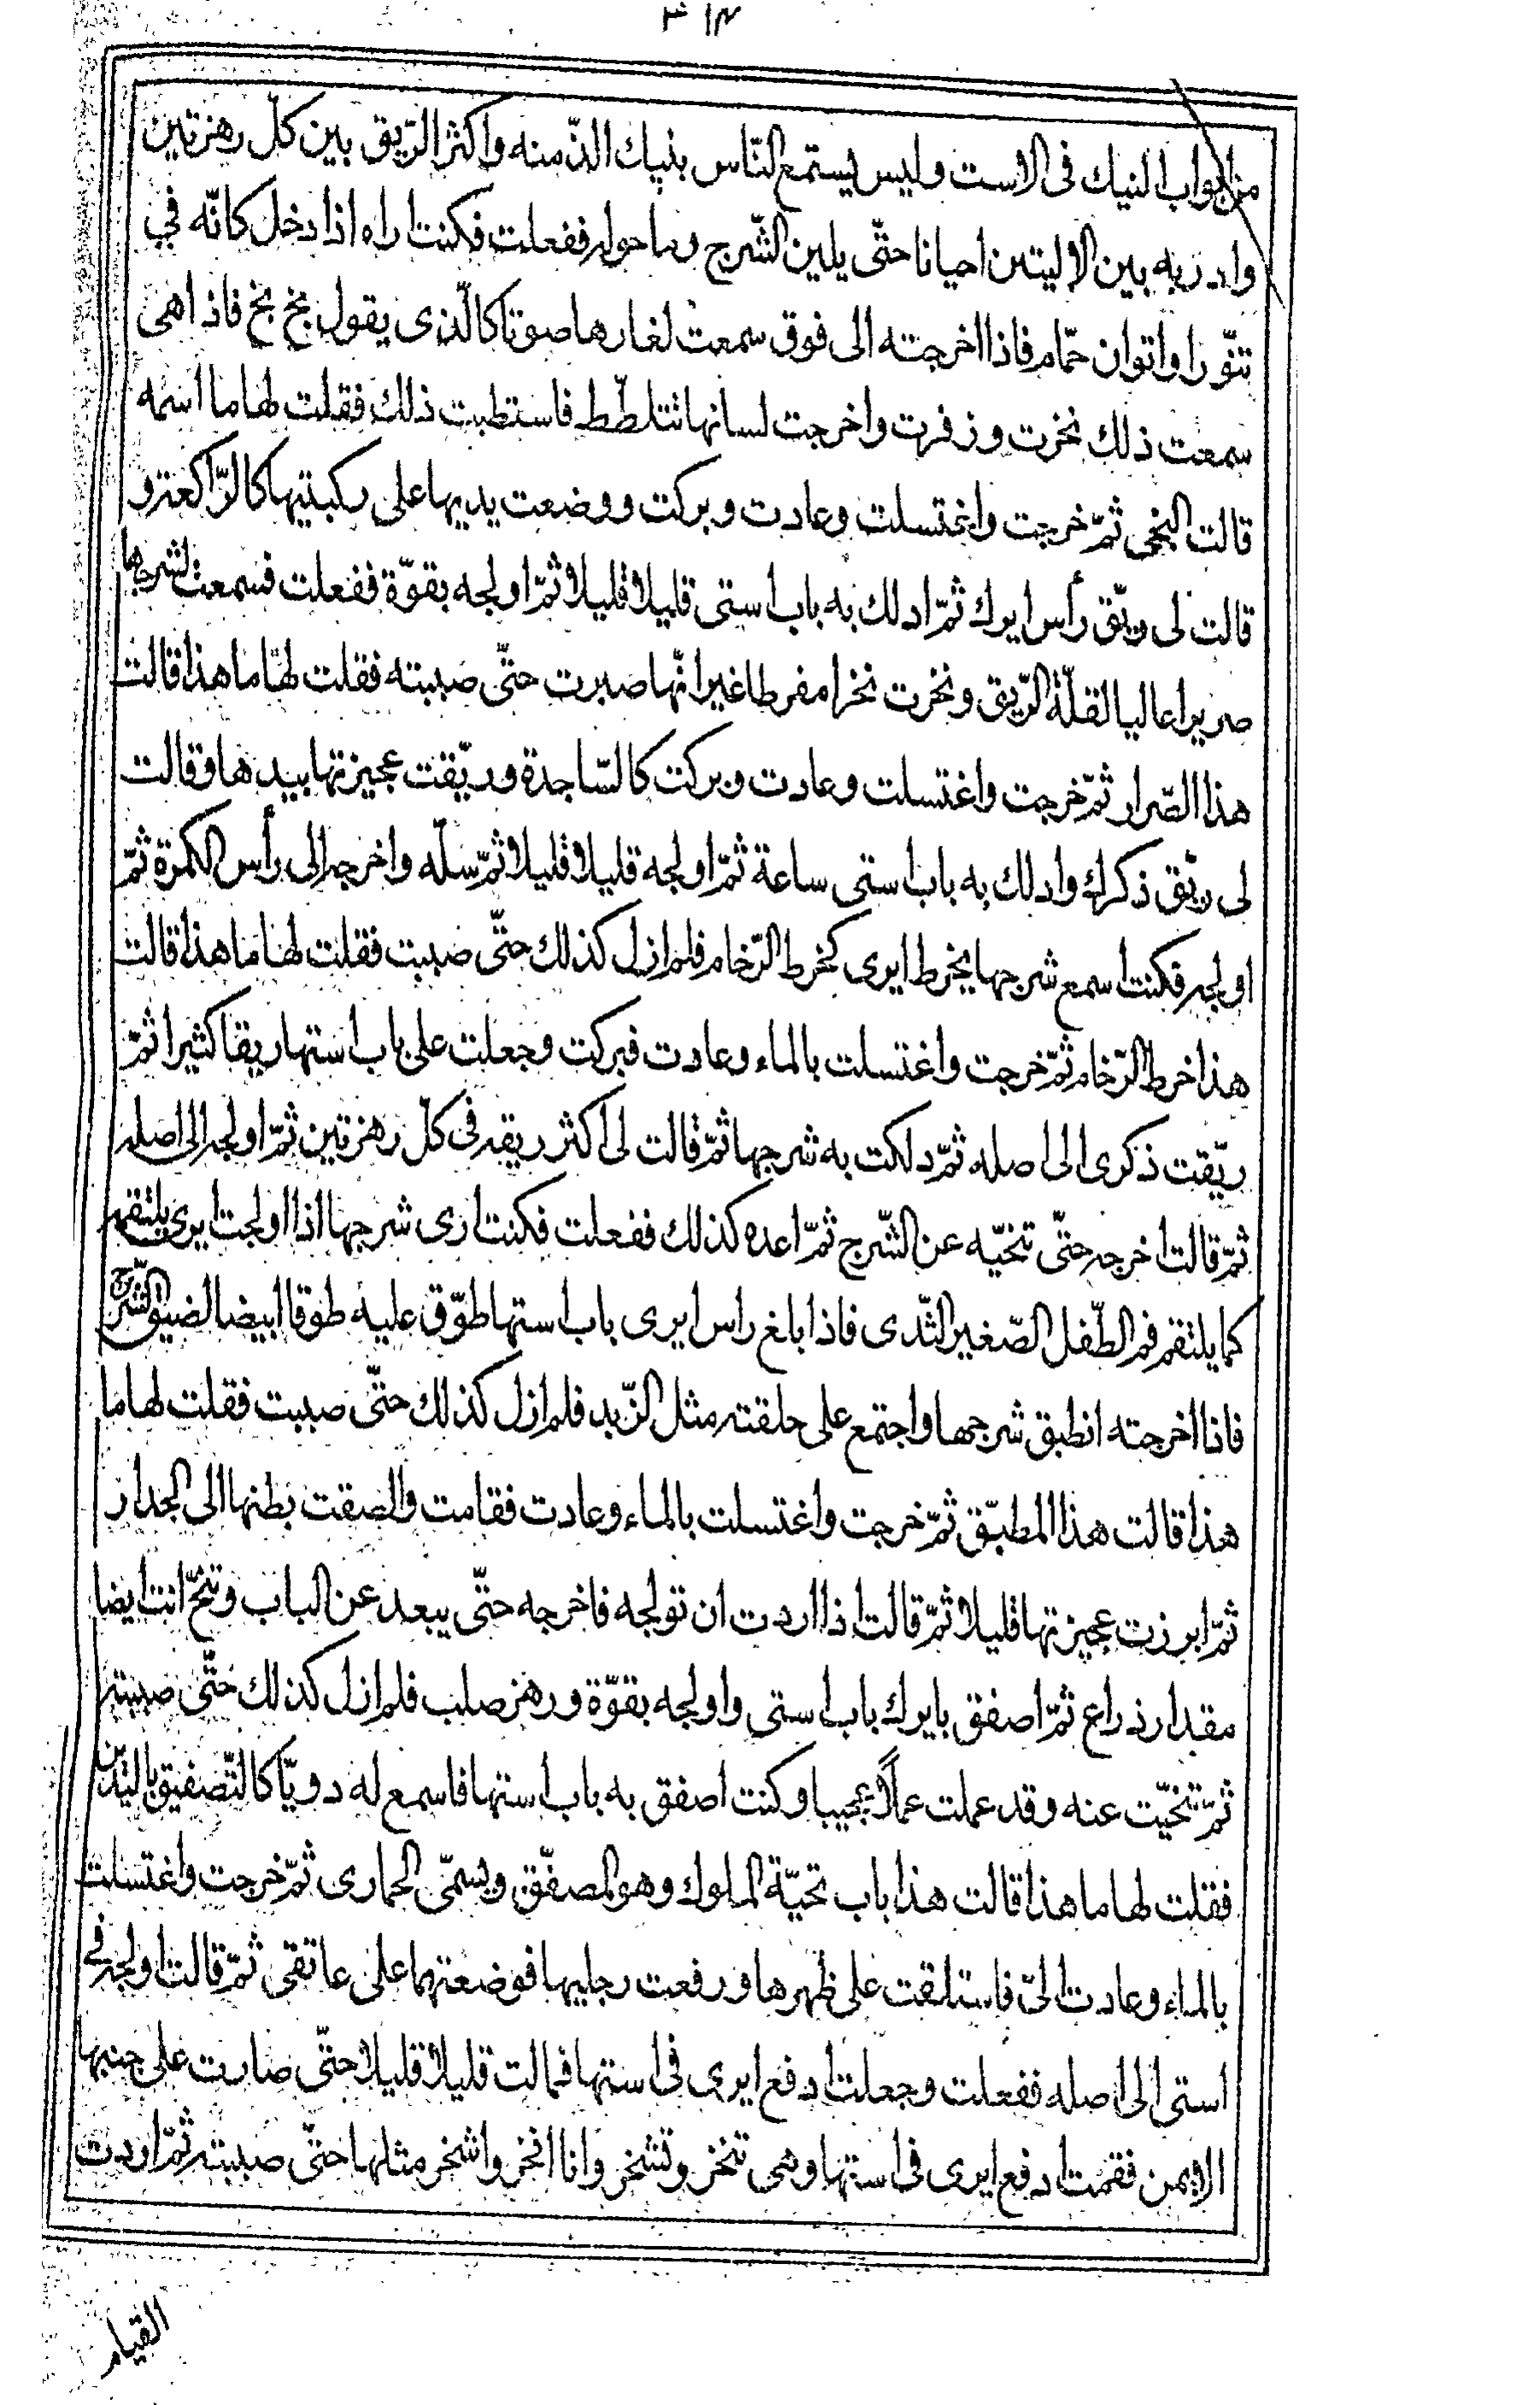 ٣١٤
من ابواب النيك فى الاست وليس يستمع الناس بنيك الذّ منه واكثر الرّيق بين كلّ رهزتين
وادر به بين الاليتين احيانا حتّى يلين الشّرج وما حوله ففعلت فكنت اراه اذا دخل كانّه في
تنّورا واتوان حمّام فاذا اخرجته الى فوق سمعت لغارها صوتا كالّذى يقول بخ بخ فاذا هى
سمعت ذلك نخرت وزفرت واخرجت لسانها تتلطّط فاستطبت ذلك فقلت لها ما اسمه
قالت البخى ثمّ خرجت واغتسلت وعادت وبركت ووضعت يديها على ركبتيها كالرّاكعة و
قالت لى ريّق رأس ايرك ثمّ ادلك به باب استى قليلا قليلا ثمّ اولجه بقوّة ففعلت فسمعت لشرجها
صريرا عاليا لقلّة الرّيق ونخرت نخرا مفرطا غير انّها صبرت حتّى صببته فقلت لها ما هذا قالت
هذا الصّرار ثمّ خرجت واغتسلت وعادت وبركت كالسّاجدة وريّقت عجيزتها بيدها وقالت
لى ريّق ذكرك وادلك به باب استى ساعة ثمّ اولجه قليلا قليلا ثمّ سلّه واخرجه الى رأس الكمرة ثمّ
اولجه فكنت اسمع شرجها يخرط ايرى كخرط الرّخام فلم ازل كذلك حتّى صببت فقلت لها ما هذا قالت
هذا خرط الرّخام ثمّ خرجت واغتسلت بالماء وعادت فبركت وجعلت على باب استها ريقا كثيرا ثمّ
ريّقت ذكرى الى اصله ثمّ دلكت به شرجها ثمّ قالت لى اكثر ريقه فى كلّ رهزتين ثمّ اولجه الى اصله
ثمّ قالت اخرجه حتّى تنحّيه عن الشّرج ثمّ اعده كذلك ففعلت فكنت ارى شرجها اذا اولجت ايرى يلتقمه
كما يلتقم فم الطّفل الصّغير الثّدى فاذا بلغ راس ايرى باب استها طوّق عليه طوقا ابيضا لضيق الشّرج
فاذا اخرجته انطبق شرجها واجتمع على حلقته مثل الزّبد فلم ازل كذلك حتّى صببت فقلت لها ما
هذا قالت هذا المطبّق ثمّ خرجت واغتسلت بالماء وعادت فقامت والصقت بطنها الى الجدار
ثمّ ابرزت عجيزتها قليلا ثمّ قالت اذا اردت ان تولجه فاخرجه حتّى يبعد عن الباب وتنحّ انت ايضا
مقدار ذراع ثمّ اصفق بايرك باب استى واولجه بقوّة ورهز صلب فلم ازل كذلك حتّى صببته
ثمّ تنحّيت عنه وقد عملت عملاً عجيبا وكنت اصفق به باب استها فاسمع له دويّا كالتّصفيق باليدين
فقلت لها ما هذا قالت هذا باب تحيّة الملوك وهو المصفّق ويسمّى الحمارى ثمّ خرجت واغتسلت
بالماء وعادت الىّ فاستلقت على ظهرها ورفعت رجليها فوضعتهما على عاتقى ثمّ قالت اولجه فى
استى الى اصله ففعلت وجعلت ادفع ايرى فى استها فمالت قليلا قليلا حتّى صارت على جنبها
الايمن فقمت ادفع ايرى فى استها وهى تنخر وتشخر وانا انخر واشخر مثلها حتّى صببته ثمّ اردت
القيام